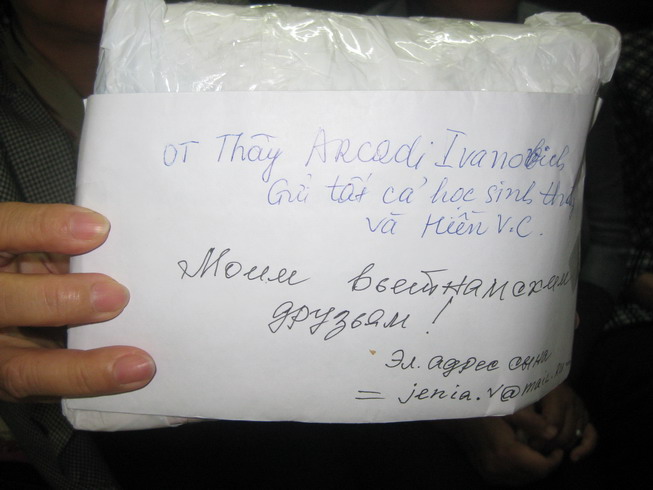 от Thầy Arcadi Ivanovich
Gửi tất cả học sinh
và Hiền V.C.
Моим вьетнамским
друзьям!
Эл. адрес сына
= jenia.v@mail.